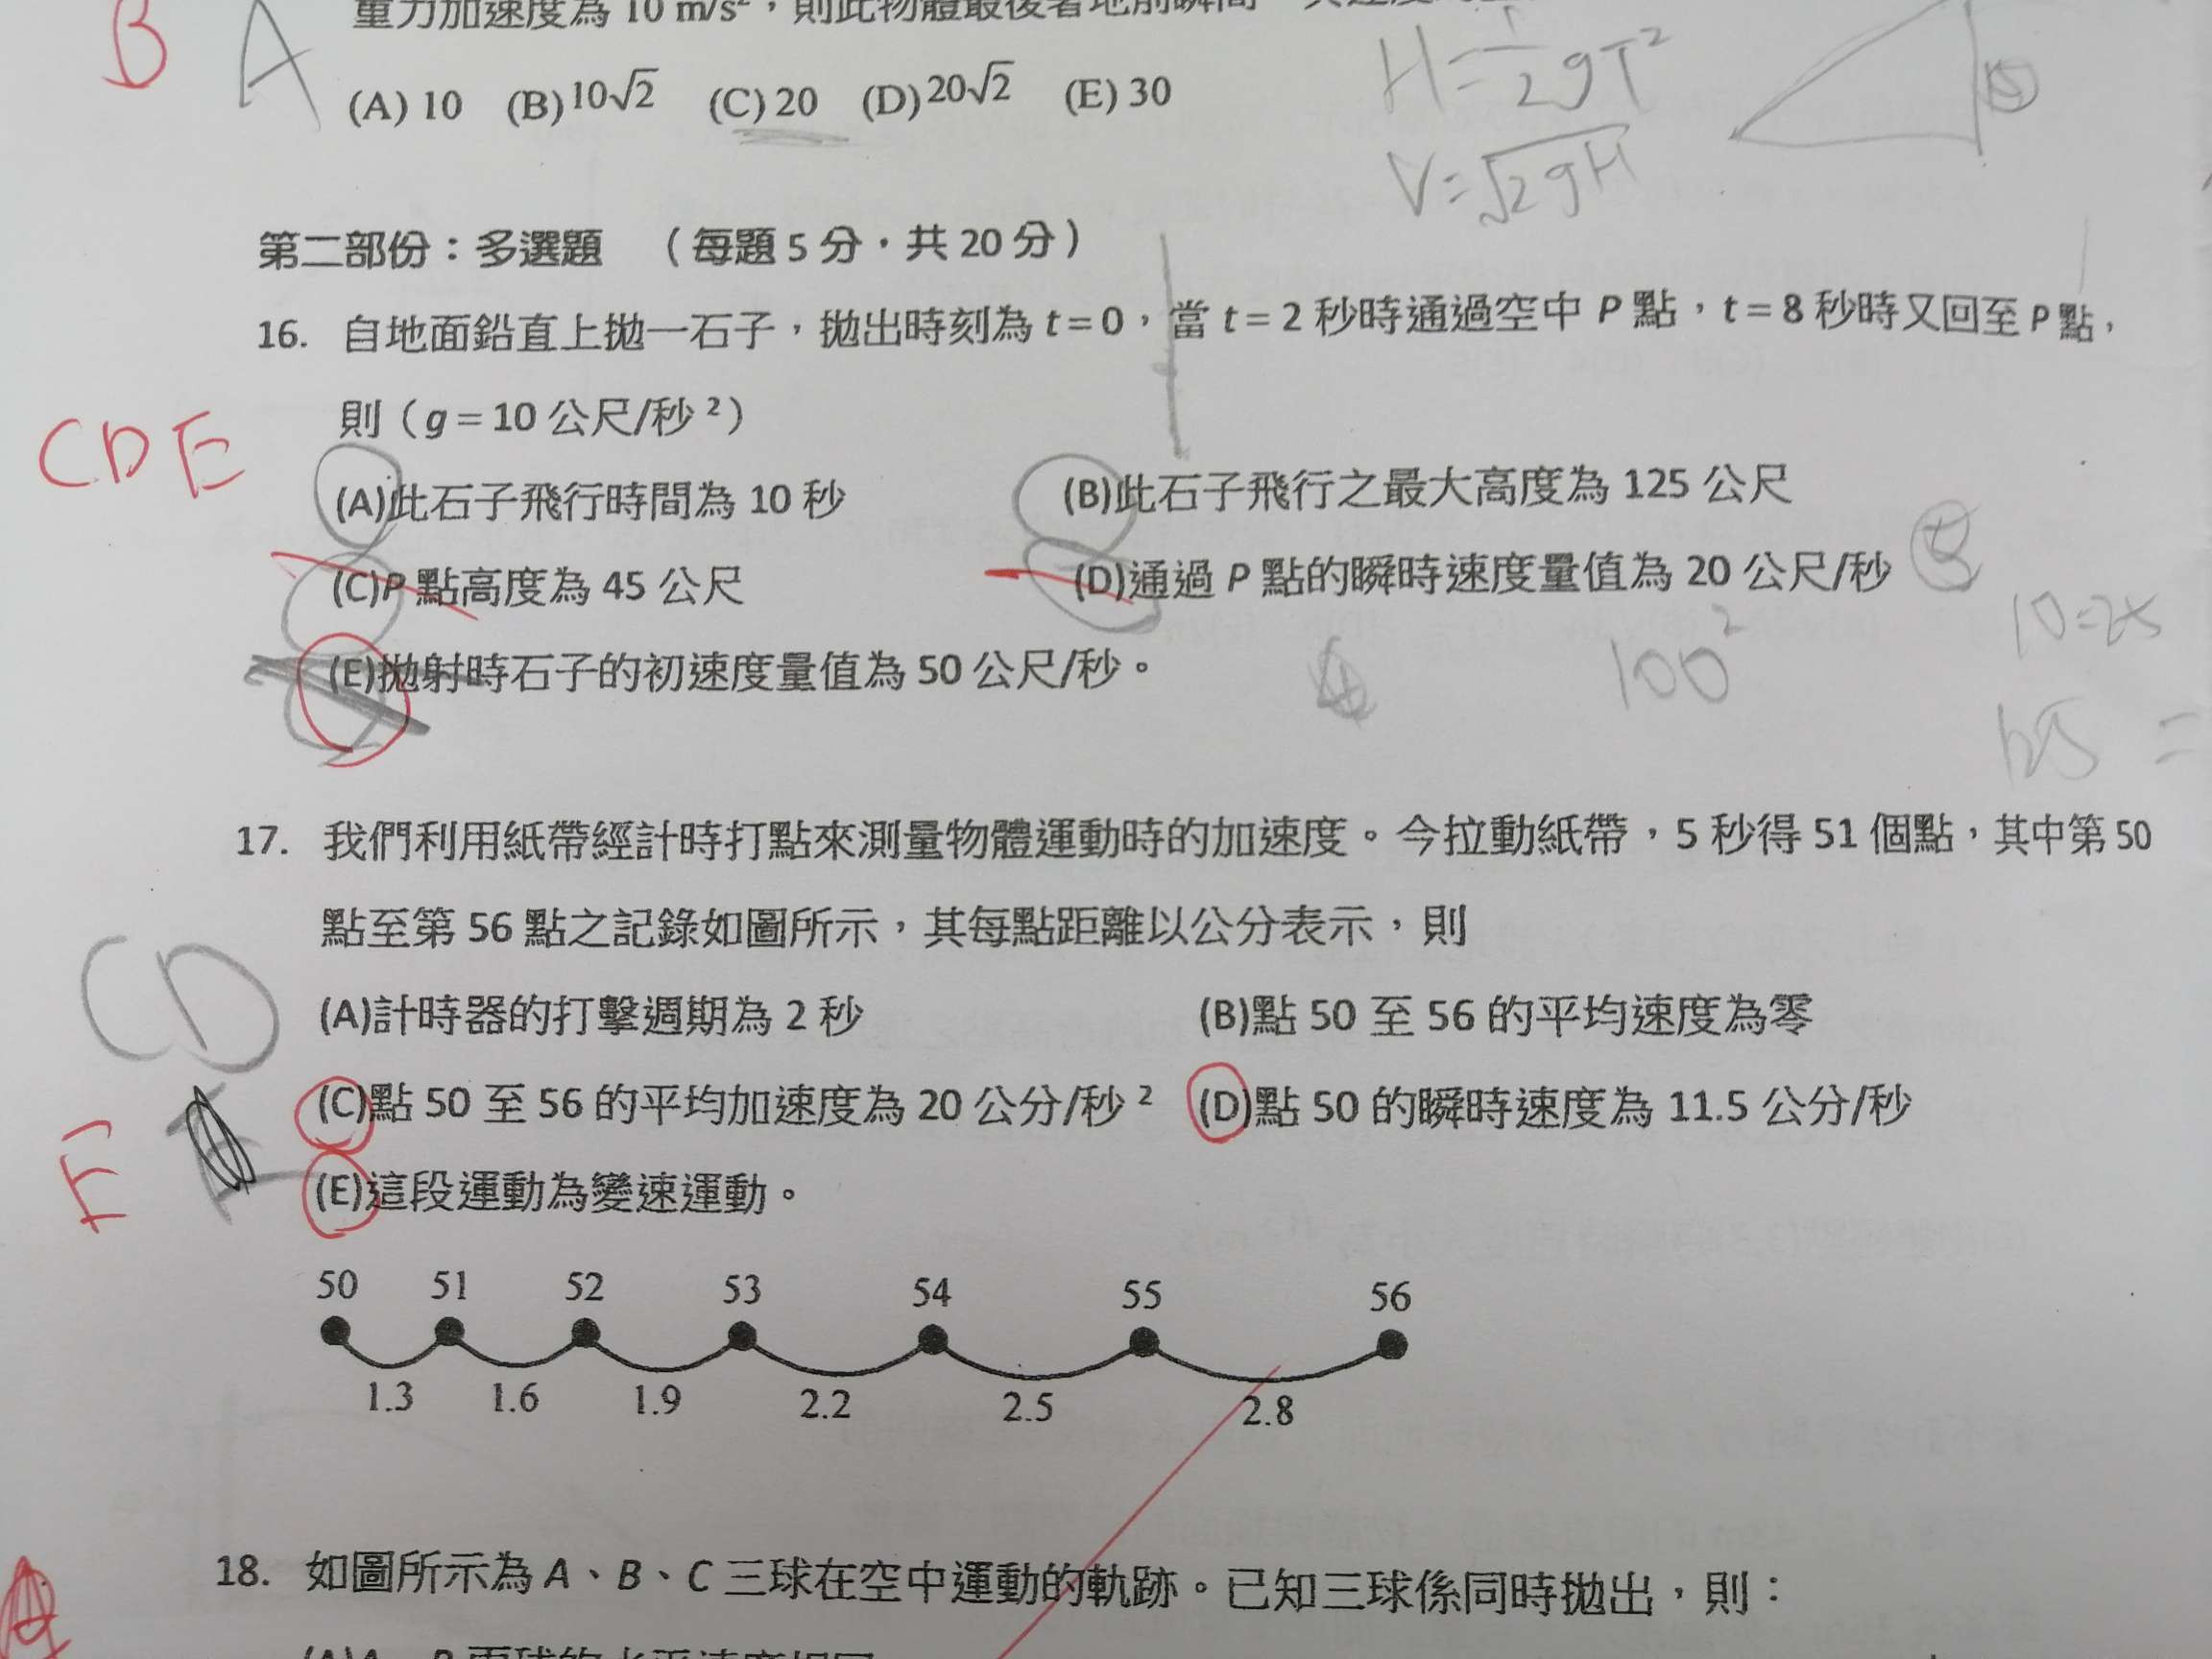 重力加速度為 10 m/s²，則此物體最後著地前瞬間
B A
(A) 10 (B) 10√2 (C) 20 (D) 20√2 (E) 30
H=1/2gT²
V=√2gH
15
第二部份：多選題 （每題 5 分，共 20 分）
16. 自地面鉛直上拋一石子，拋出時刻為 t = 0，當 t = 2 秒時通過空中 P 點，t = 8 秒時又回至 P 點，
則（g = 10 公尺/秒²）
CDE
(A)此石子飛行時間為 10 秒 (B)此石子飛行之最大高度為 125 公尺
(C)P 點高度為 45 公尺 (D)通過 P 點的瞬時速度量值為 20 公尺/秒
(E)拋射時石子的初速度量值為 50 公尺/秒。
100²
17. 我們利用紙帶經計時打點來測量物體運動時的加速度。今拉動紙帶，5 秒得 51 個點，其中第 50
點至第 56 點之記錄如圖所示，其每點距離以公分表示，則
CD
(A)計時器的打擊週期為 2 秒 (B)點 50 至 56 的平均速度為零
(C)點 50 至 56 的平均加速度為 20 公分/秒² (D)點 50 的瞬時速度為 11.5 公分/秒
E
(E)這段運動為變速運動。
50 51 52 53 54 55 56
1.3 1.6 1.9 2.2 2.5 2.8
18. 如圖所示為 A、B、C 三球在空中運動的軌跡。已知三球係同時拋出，則：